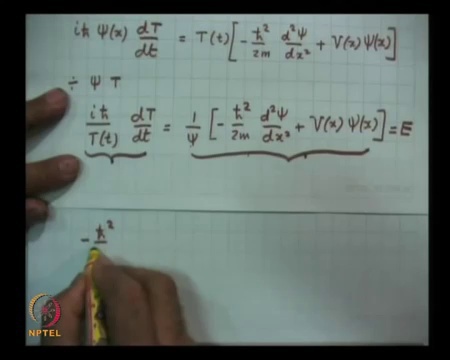 iħ Ψ(x) dT/dt = T(t)[-ħ²/2m d²Ψ/dx² + V(x) Ψ(x)]
÷ Ψ T
iħ/T(t) dT/dt = 1/Ψ [-ħ²/2m d²Ψ/dx² + V(x) Ψ(x)] = E
-ħ²
NPTEL